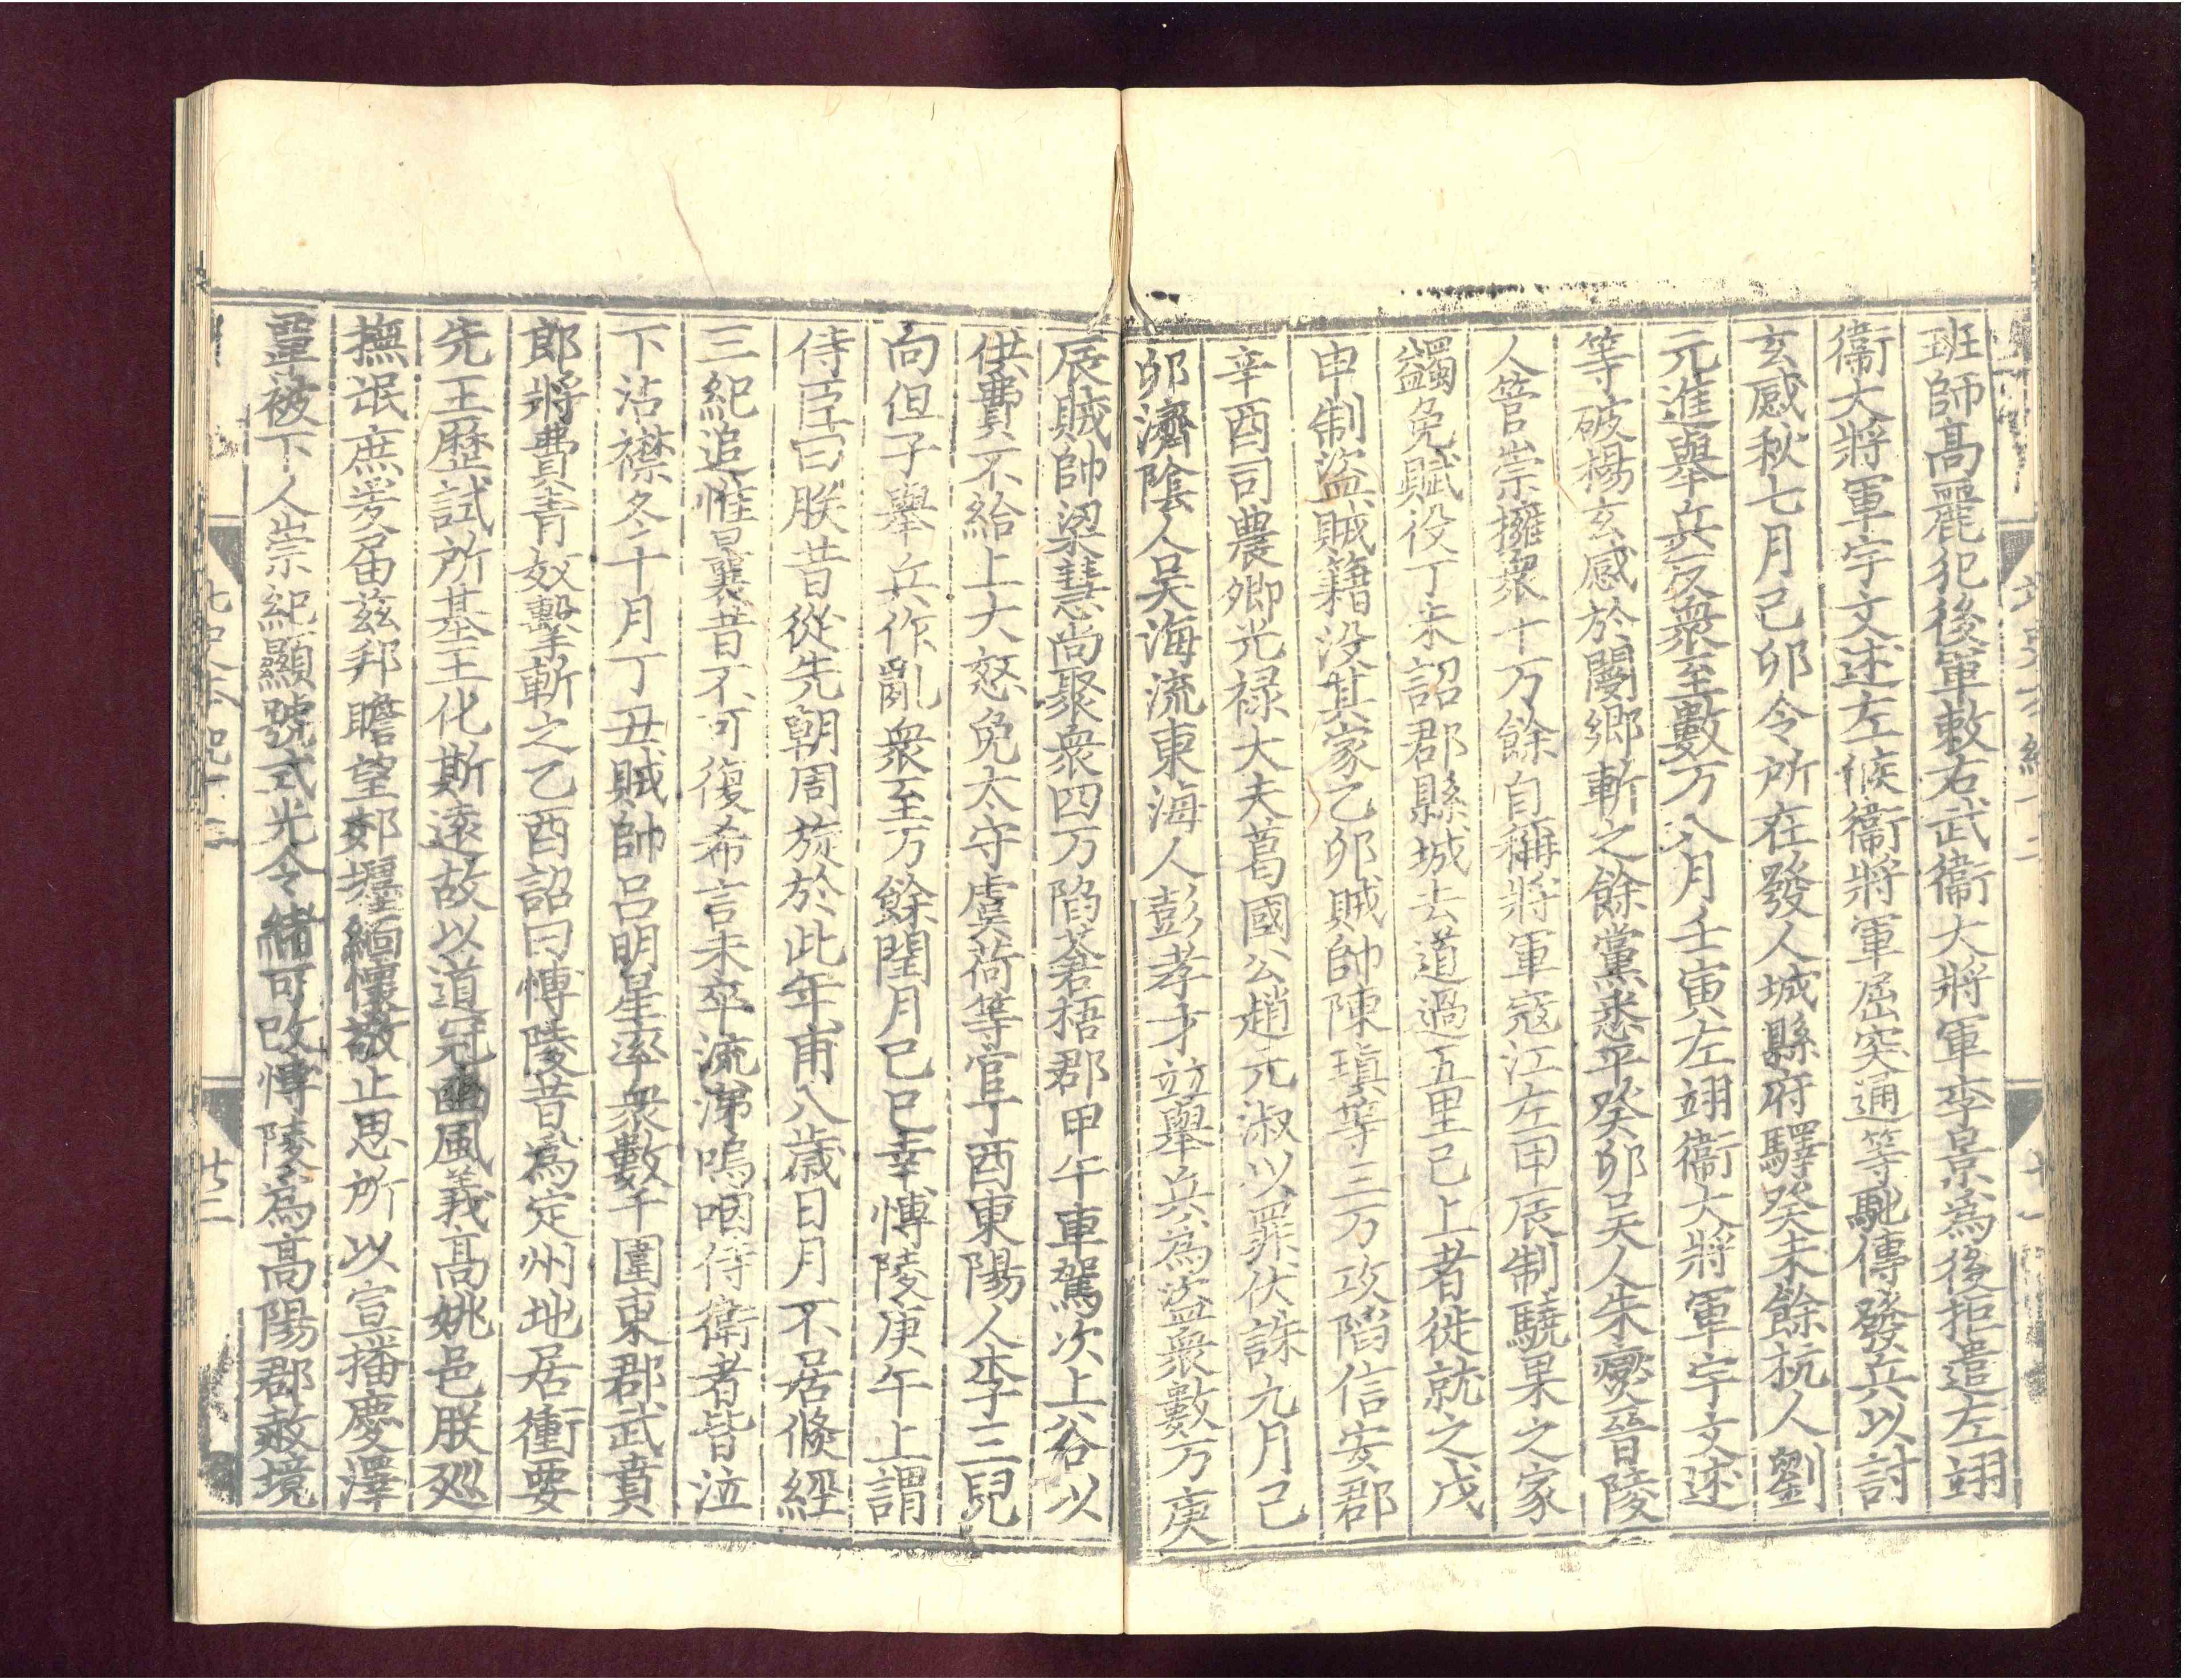 班師髙麗犯後軍敕右武衞大將軍李景爲後拒遣左翊
衞大將軍宇文述左候衞將軍屈突通等馳傳發兵以討
玄感秋七月己卯令所在發人城縣府驛癸未餘杭人劉
元進舉兵反衆至數万八月壬寅左翊衞大將軍宇文述
等破楊玄感於閿鄉斬之餘黨悉平癸卯吴人朱燮晉陵
人管崇擁衆十万餘自稱將軍寇江左甲辰制驍果之家
蠲免賦役丁未詔郡縣城去道過五里已上者徙就之戊
申制盜賊籍没其家乙卯賊帥陳瑱等三万攻陷信安郡
辛酉司農卿光禄大夫葛國公趙元淑以罪伏誅九月己
卯濟隂人吴海流東海人彭孝才竝舉兵爲盜衆數万庚
辰賊帥梁慧尚聚衆四万陷蒼梧郡甲午車駕次上谷以
供費不給上大怒免太守虞荷等官丁酉東陽人李三兒
向但子舉兵作亂衆至万餘閏月己巳幸博陵庚午上謂
侍臣曰朕昔從先朝周旋於此年甫八歲日月不居倏經
三紀追惟曩昔不可復希言未卒流涕嗚咽侍衞者皆泣
下沾襟冬十月丁丑賊帥吕明星率衆數千圍東郡武賁
郎將費青奴擊斬之乙酉詔曰博陵昔爲定州地居衝要
先王歷試所基王化斯遠故以道冠豳風義髙姚邑朕廵
撫氓庶爰屆兹邦瞻望郊壥緬懷敬止思所以宣播慶澤
覃被下人崇紀顯號式光令緒可改博陵爲髙陽郡赦境
北史本紀十二
廿二